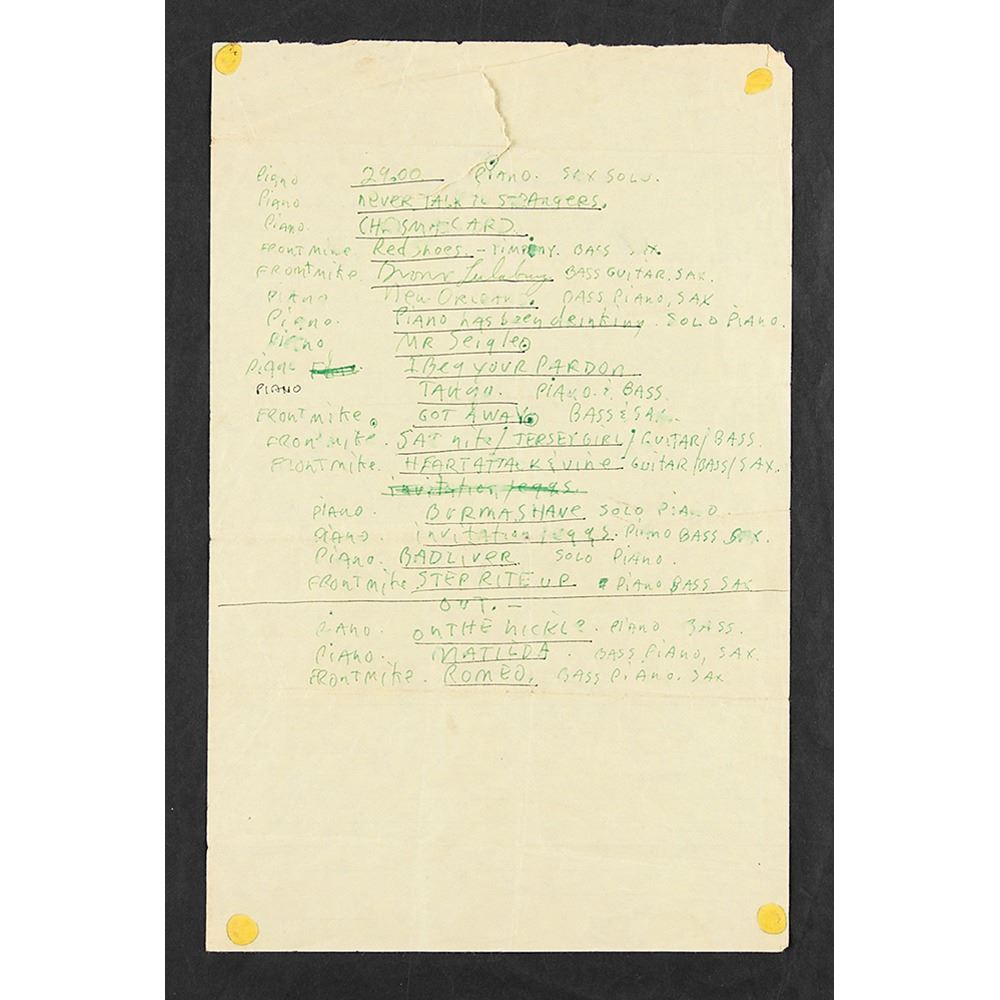 Piano 29.00 PIANO. SAX SOLO.
Piano NEVER TALK to STRAngers.
Piano. CHRISMA CARD.
FRONT Mike Red shoes. - TIMPANY. BASS SAX.
FRONT mike. Bronx Lulabuy BASS GUITAR. SAX.
PIANO New ORLEANS. BASS, PIANO, SAX
Piano. Piano has been drinking. SOLO PIANO.
Piano MR Seigle
Piano I Beg YOUR PARDON
PIANO TANGO. PIANO. & BASS.
FRONT mike. GOT AWAY BASS & SAX.
FRONT mike. SAT nite/ JERSEY GIRL/ GUITAR/ BASS.
FRONT mike. HEART ATTACK & vine. GUITAR/BASS/SAX.
invitation/eggs
PIANO. BURMA SHAVE SOLO PIANO
PIANO. invitation/eggs. Piano BASS SAX.
PIANO. BAD LIVER SOLO PIANO.
FRONT mike STEP RITE UP PIANO BASS SAX
OUT. -
PIANO. on THE NICKLE. PIANO BASS.
PIANO. MATILDA. BASS, PIANO, SAX.
FRONT Mike. ROMEO. BASS PIANO. SAX